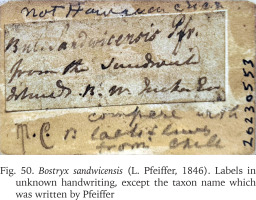 not Hawaiian
Bul. Sandwicensis Pfr.
from the Sandwich
Islands
compare with
M. C.
from Chile
20230553
Fig. 50. Bostryx sandwicensis (L. Pfeiffer, 1846). Labels in
unknown handwriting, except the taxon name which
was written by Pfeiffer